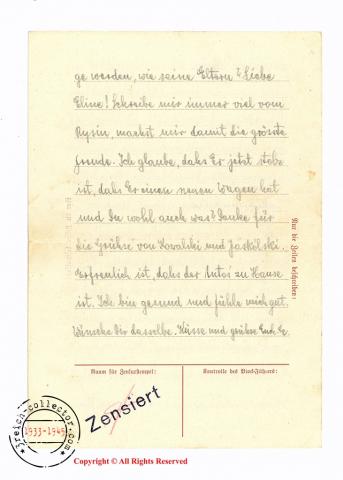 ge werden, wie seine Eltern? Liebe
Eline! Schreibe mir immer viel vom
Rysin, machst mir damit die grösste
Freude. Ich glaube, dahs Er jetzt stolz
ist, dahs Er einen neuen Wagen hat
und Du wohl auch was? Danke für
die Grühse von Kowalski und Jaskólski.
Erfreulich ist, dahs der Antos zu Hause
ist. Ich bin gesund und fühle mich gut.
Wünsche Dir dasselbe. Küsse und grühse Euch. E.
Nur die Zeilen beschreiben!
Raum für Zensurstempel:
Kontrolle des Block-Führers:
Zensiert
3reich-collector.com
1933-1945
Copyright © All Rights Reserved